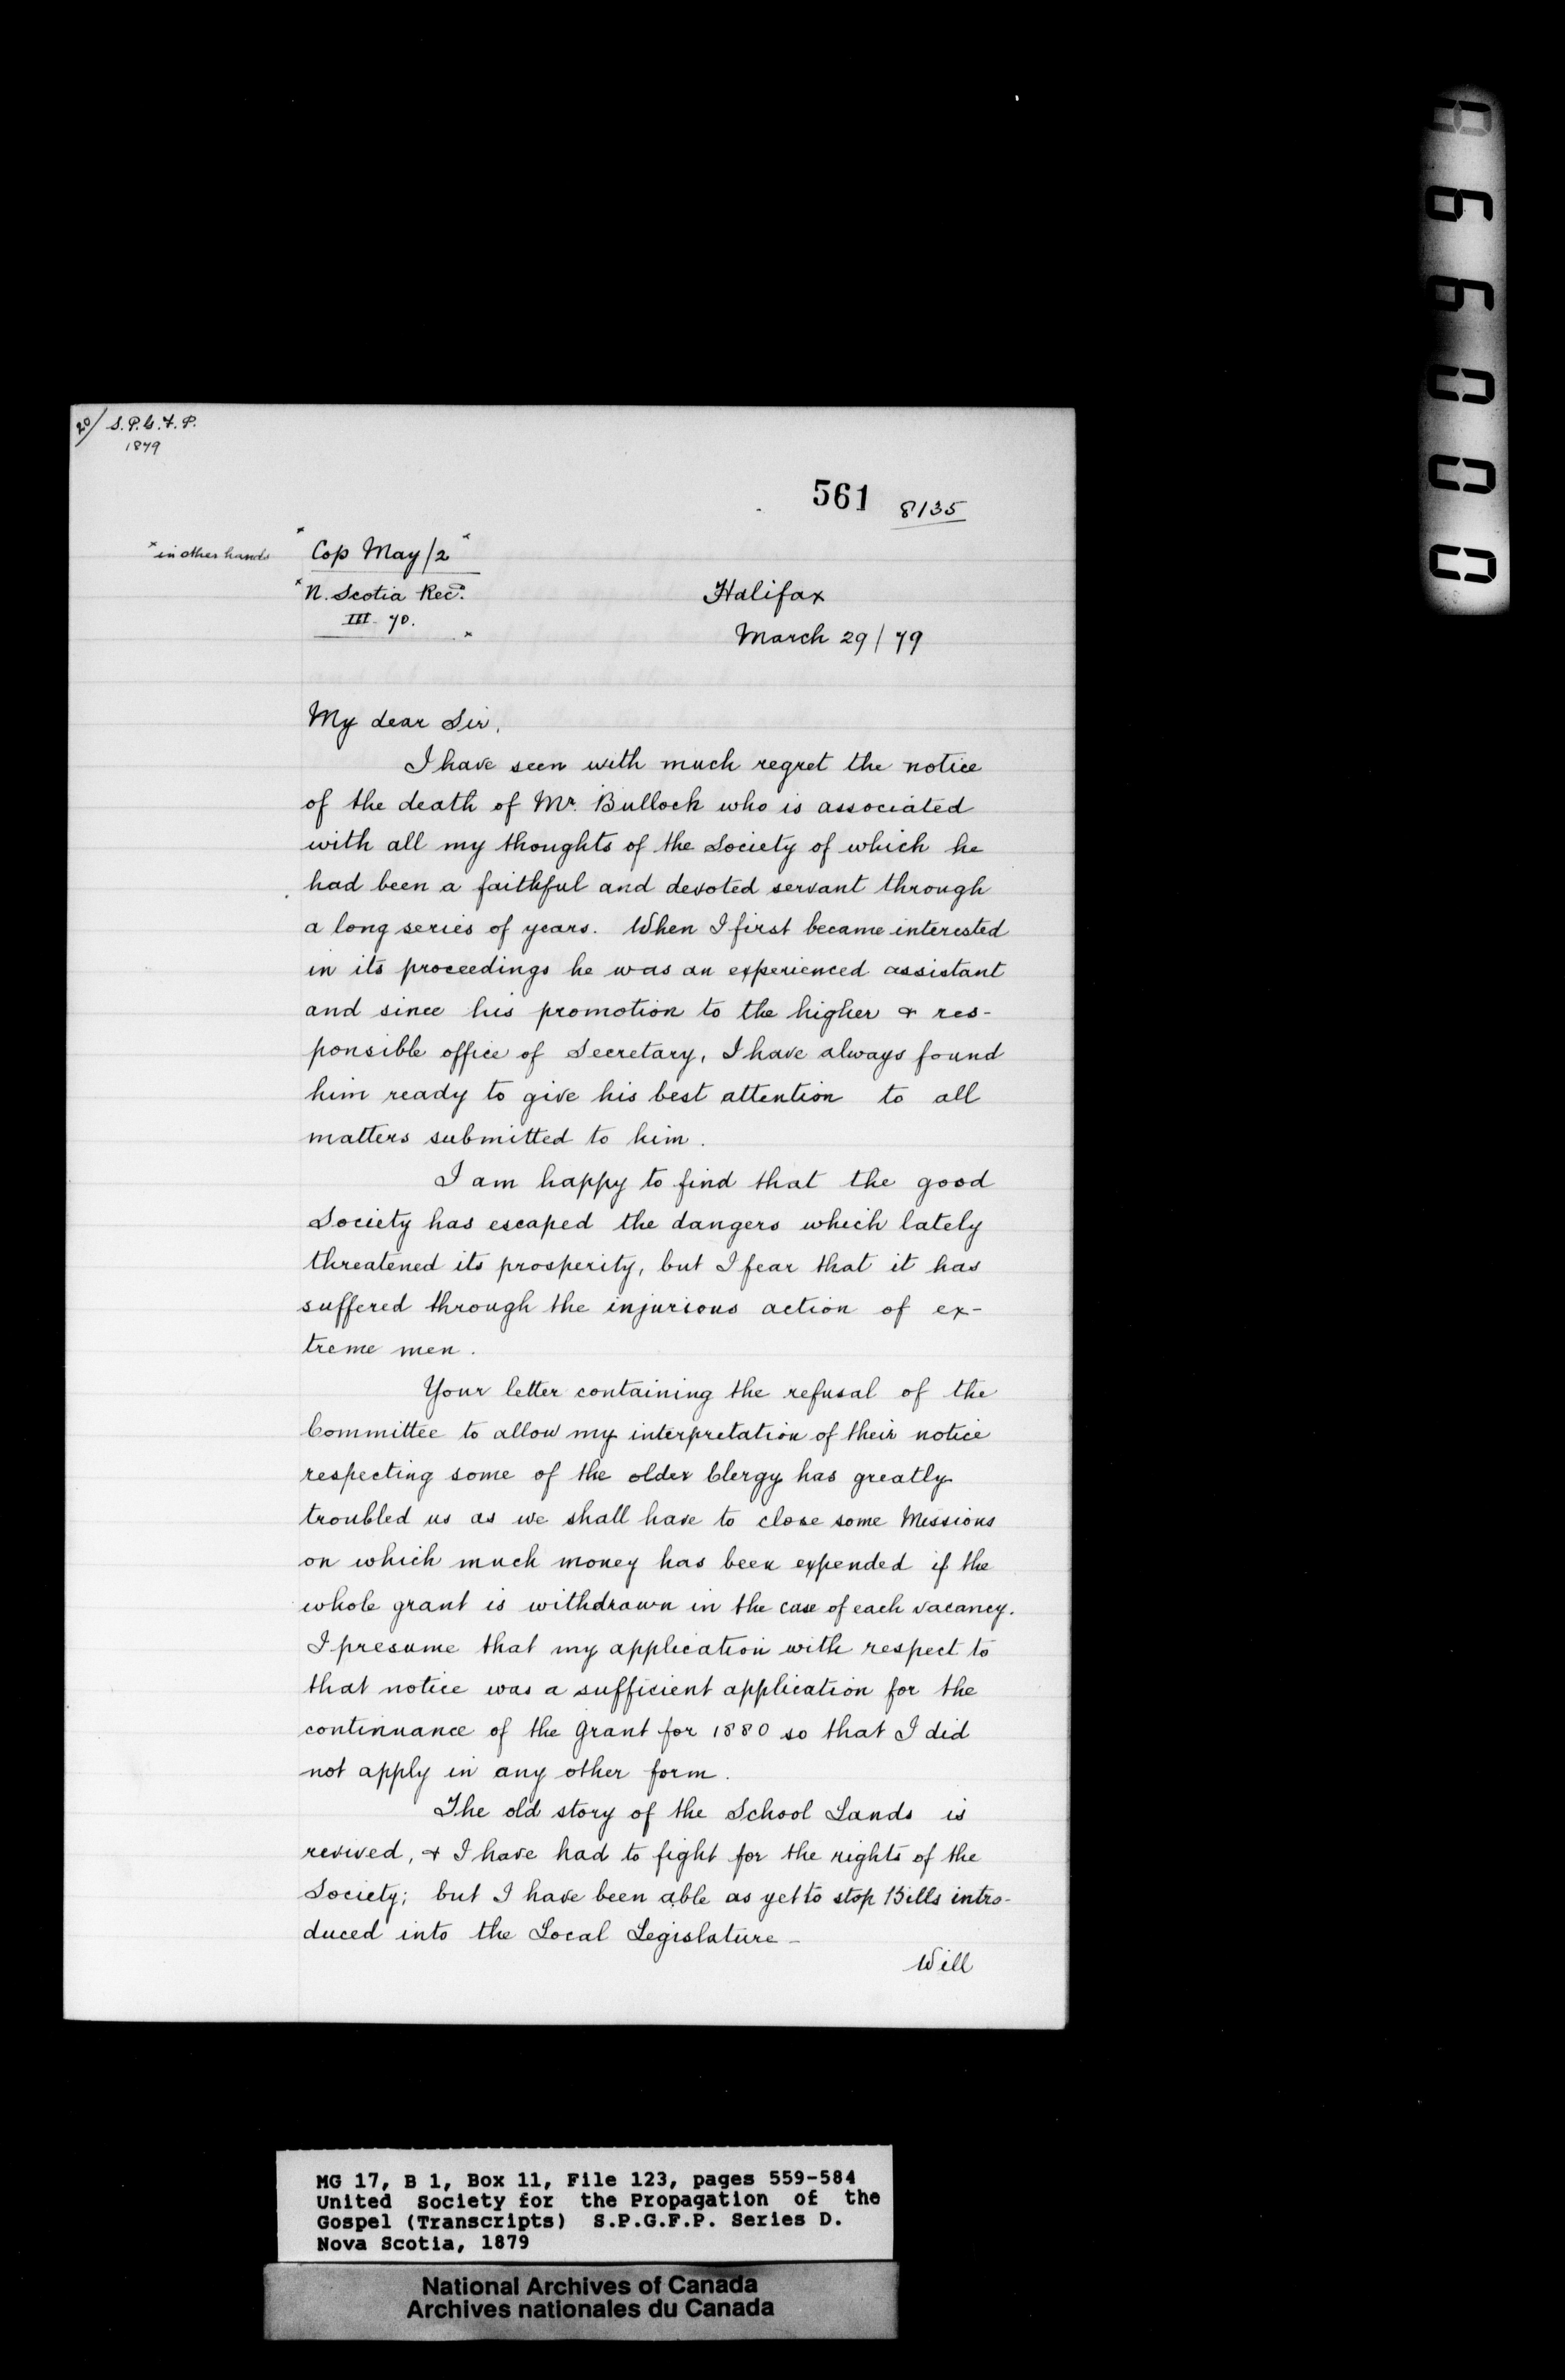 20/ S.P.G.F.P.
1879
561 8135
x in other hands
x Cop May/2 x
x N. Scotia Recd.
III 70. x
Halifax
March 29/79
My dear Sir,
I have seen with much regret the notice
of the death of Mr. Bullock who is associated
with all my thoughts of the Society of which he
had been a faithful and devoted servant through
a long series of years. When I first became interested
in its proceedings he was an experienced assistant
and since his promotion to the higher & res-
ponsible office of Secretary, I have always found
him ready to give his best attention to all
matters submitted to him.
I am happy to find that the good
Society has escaped the dangers which lately
threatened its prosperity, but I fear that it has
suffered through the injurious action of ex-
treme men.
Your letter containing the refusal of the
Committee to allow my interpretation of their notice
respecting some of the older Clergy has greatly
troubled us as we shall have to close some Missions
on which much money has been expended if the
whole grant is withdrawn in the case of each vacancy.
I presume that my application with respect to
that notice was a sufficient application for the
continuance of the Grant for 1880 so that I did
not apply in any other form.
The old story of the School Lands is
revived, & I have had to fight for the rights of the
Society; but I have been able as yet to stop Bills intro-
duced into the Local Legislature -
Will
MG 17, B 1, Box 11, File 123, pages 559-584
United Society for the Propagation of the
Gospel (Transcripts) S.P.G.F.P. Series D.
Nova Scotia, 1879
National Archives of Canada
Archives nationales du Canada